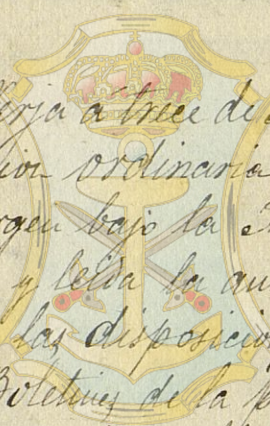 á trece de
ordinaria
bajo la
y leida la
las disposicio
Boletines de la p